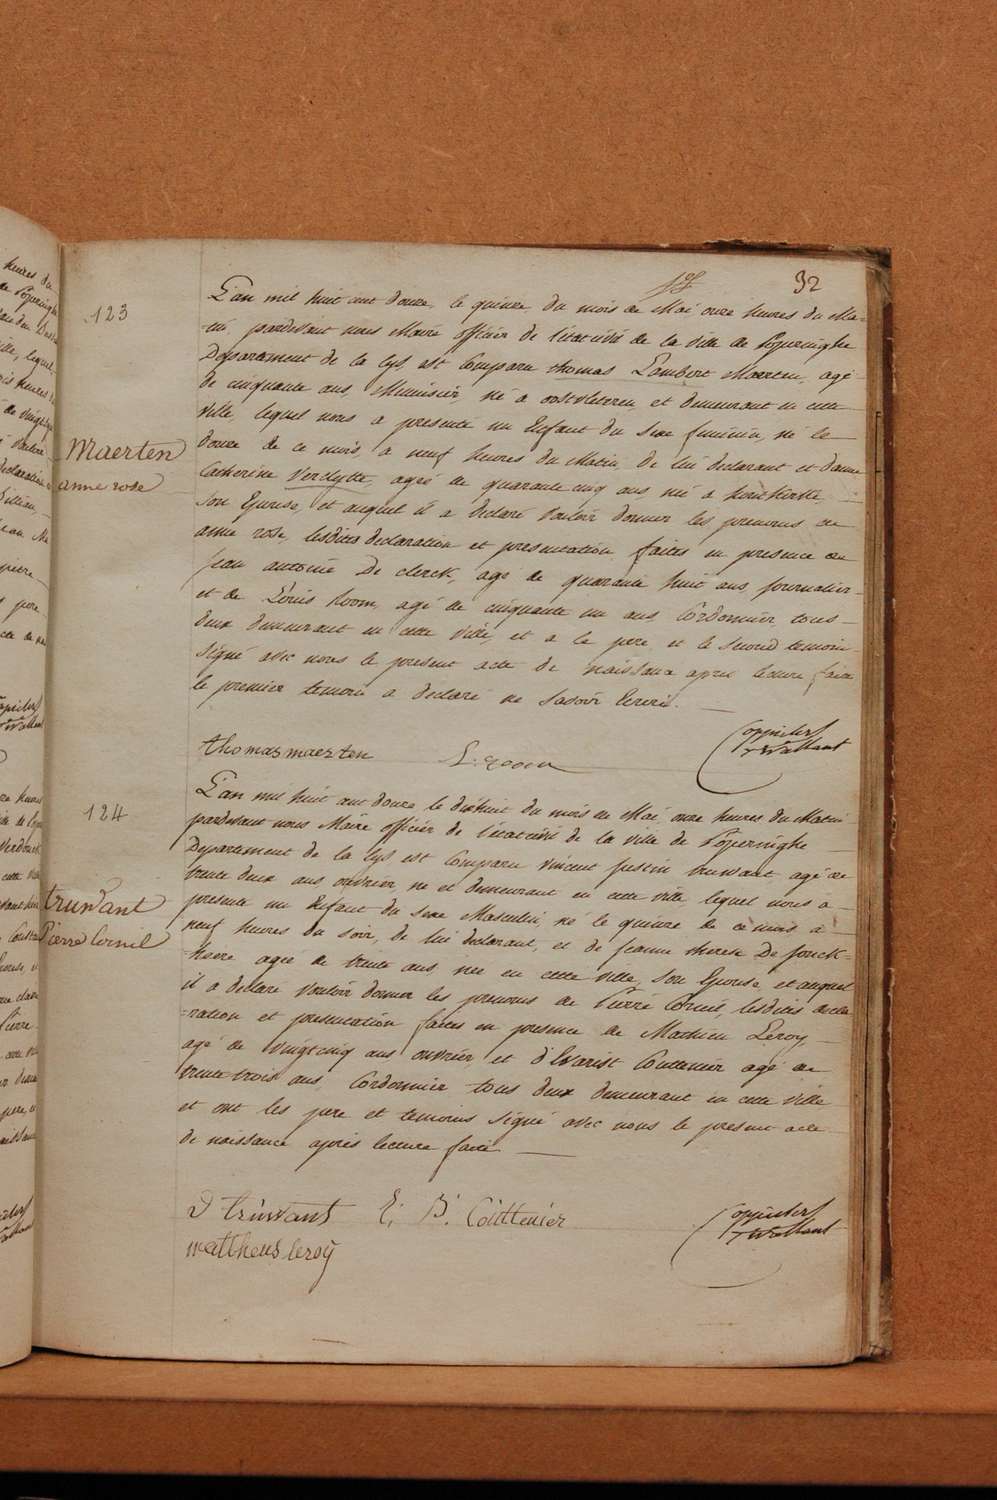 32
123
L'an mil huit cent douze le quinze du mois de Mai onze heures du Ma=
=tin pardevant nous Maire officier de l'état civil de la ville de Poperinghe
Departement de la Lys, est Comparu thomas Lambert Maerten, agé
de cinquante ans, Menuisier né a oostvleteren, et demeurant en cette
ville, lequel nous a presenté un Enfant du Sexe feminin, né le
Maerten
anne rose
douze de ce mois a neuf heures du Matin de lui declarant et d'anne
Catherine Verclytte, agée de quarante cinq ans née a
Son Epouse, et auquel il a declaré vouloir donner les prenoms de
anne rose, lesdites declaration et presentation faites en presence de
Jean antoine De clerck, agé de quarante huit ans, journalier
et de Louis Room, agé de cinquante un ans Cordonnier tous
deux demeurant en cette ville, et a le pere et le second temoin
signé avec nous le present acte de naissance apres lecture faite
le premier temoin a declaré ne savoir Ecrire.
thomas maerten L: room
124
L'an mil huit cent douze le dixhuit du mois de Mai onze heures du Matin
pardevant nous Maire officier de l'état civil de la ville de Poperinghe
Departement de la Lys est Comparu vincent Justin truwant agé de
trente deux ans ouvrier, né et demeurant en cette ville lequel nous a
truwant
Pierre Cornil
presenté un Enfant du sexe Masculin, né le quinze de ce mois a
neuf heures du soir, de lui declarant, et de jeanne therese De jonck=
=heere agée de trente ans née en cette ville, son Epouse, et auquel
il a declaré vouloir donner les prenoms de Pierre Cornil, lesdites decla
=ration et presentation faites en presence de Mathieu Leroy,
agé de vingtcinq ans ouvrier, et d'Evarist Couttenier agé de
trente trois ans, Cordonnier tous deux demeurant en cette ville
et ont les pere et temoins signé avec nous le present acte
de naissance après lecture faite
truwant E: B: Coûttenier
mattheus leroÿ